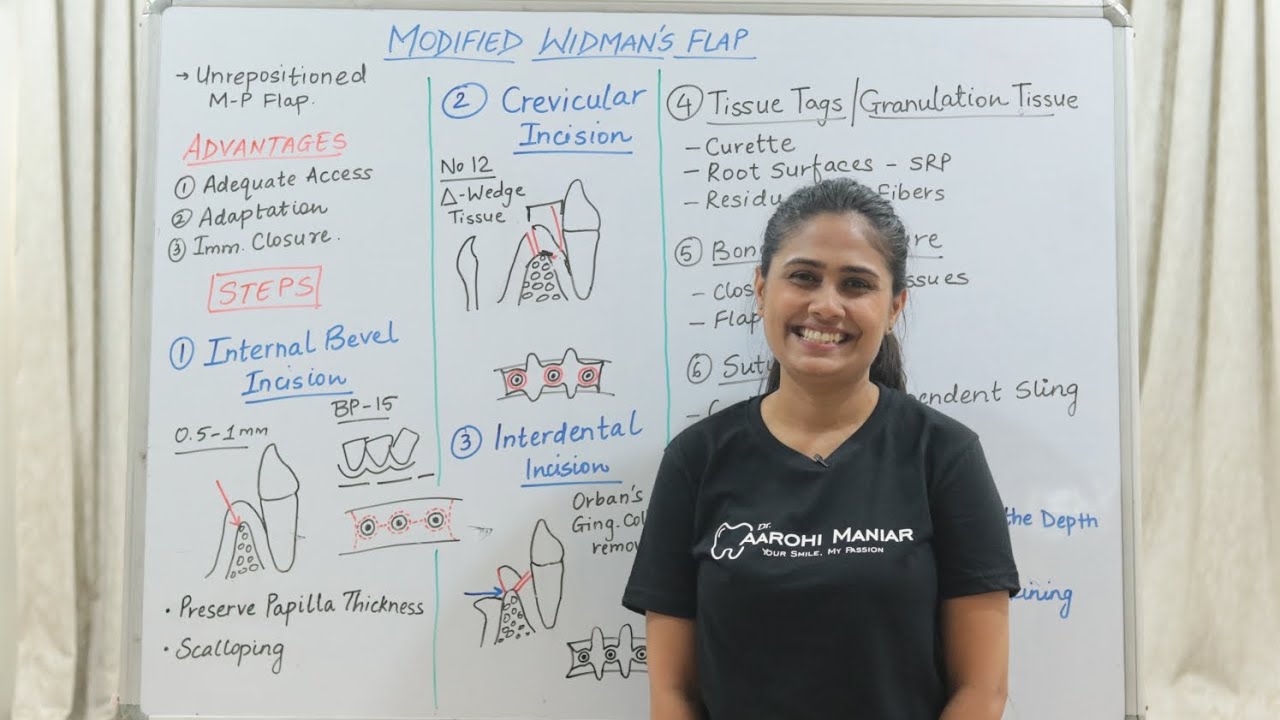 MODIFIED WIDMAN'S FLAP
→ Unrepositioned
M-P Flap.
ADVANTAGES
① Adequate Access
② Adaptation
③ Imm. Closure.
STEPS
① Internal Bevel
Incision
0.5-1mm
BP-15
• Preserve Papilla Thickness
• Scalloping
② Crevicular
Incision
No 12
Δ-Wedge
Tissue
③ Interdental
Incision
Orban's
Ging.
④ Tissue Tags/Granulation Tissue
- Curette
- Root Surfaces - SRP
- Fibers
⑤
-
- Flap
⑥
- Sling
the Depth
Dr.
AAROHI MANIAR
YOUR SMILE, MY PASSION